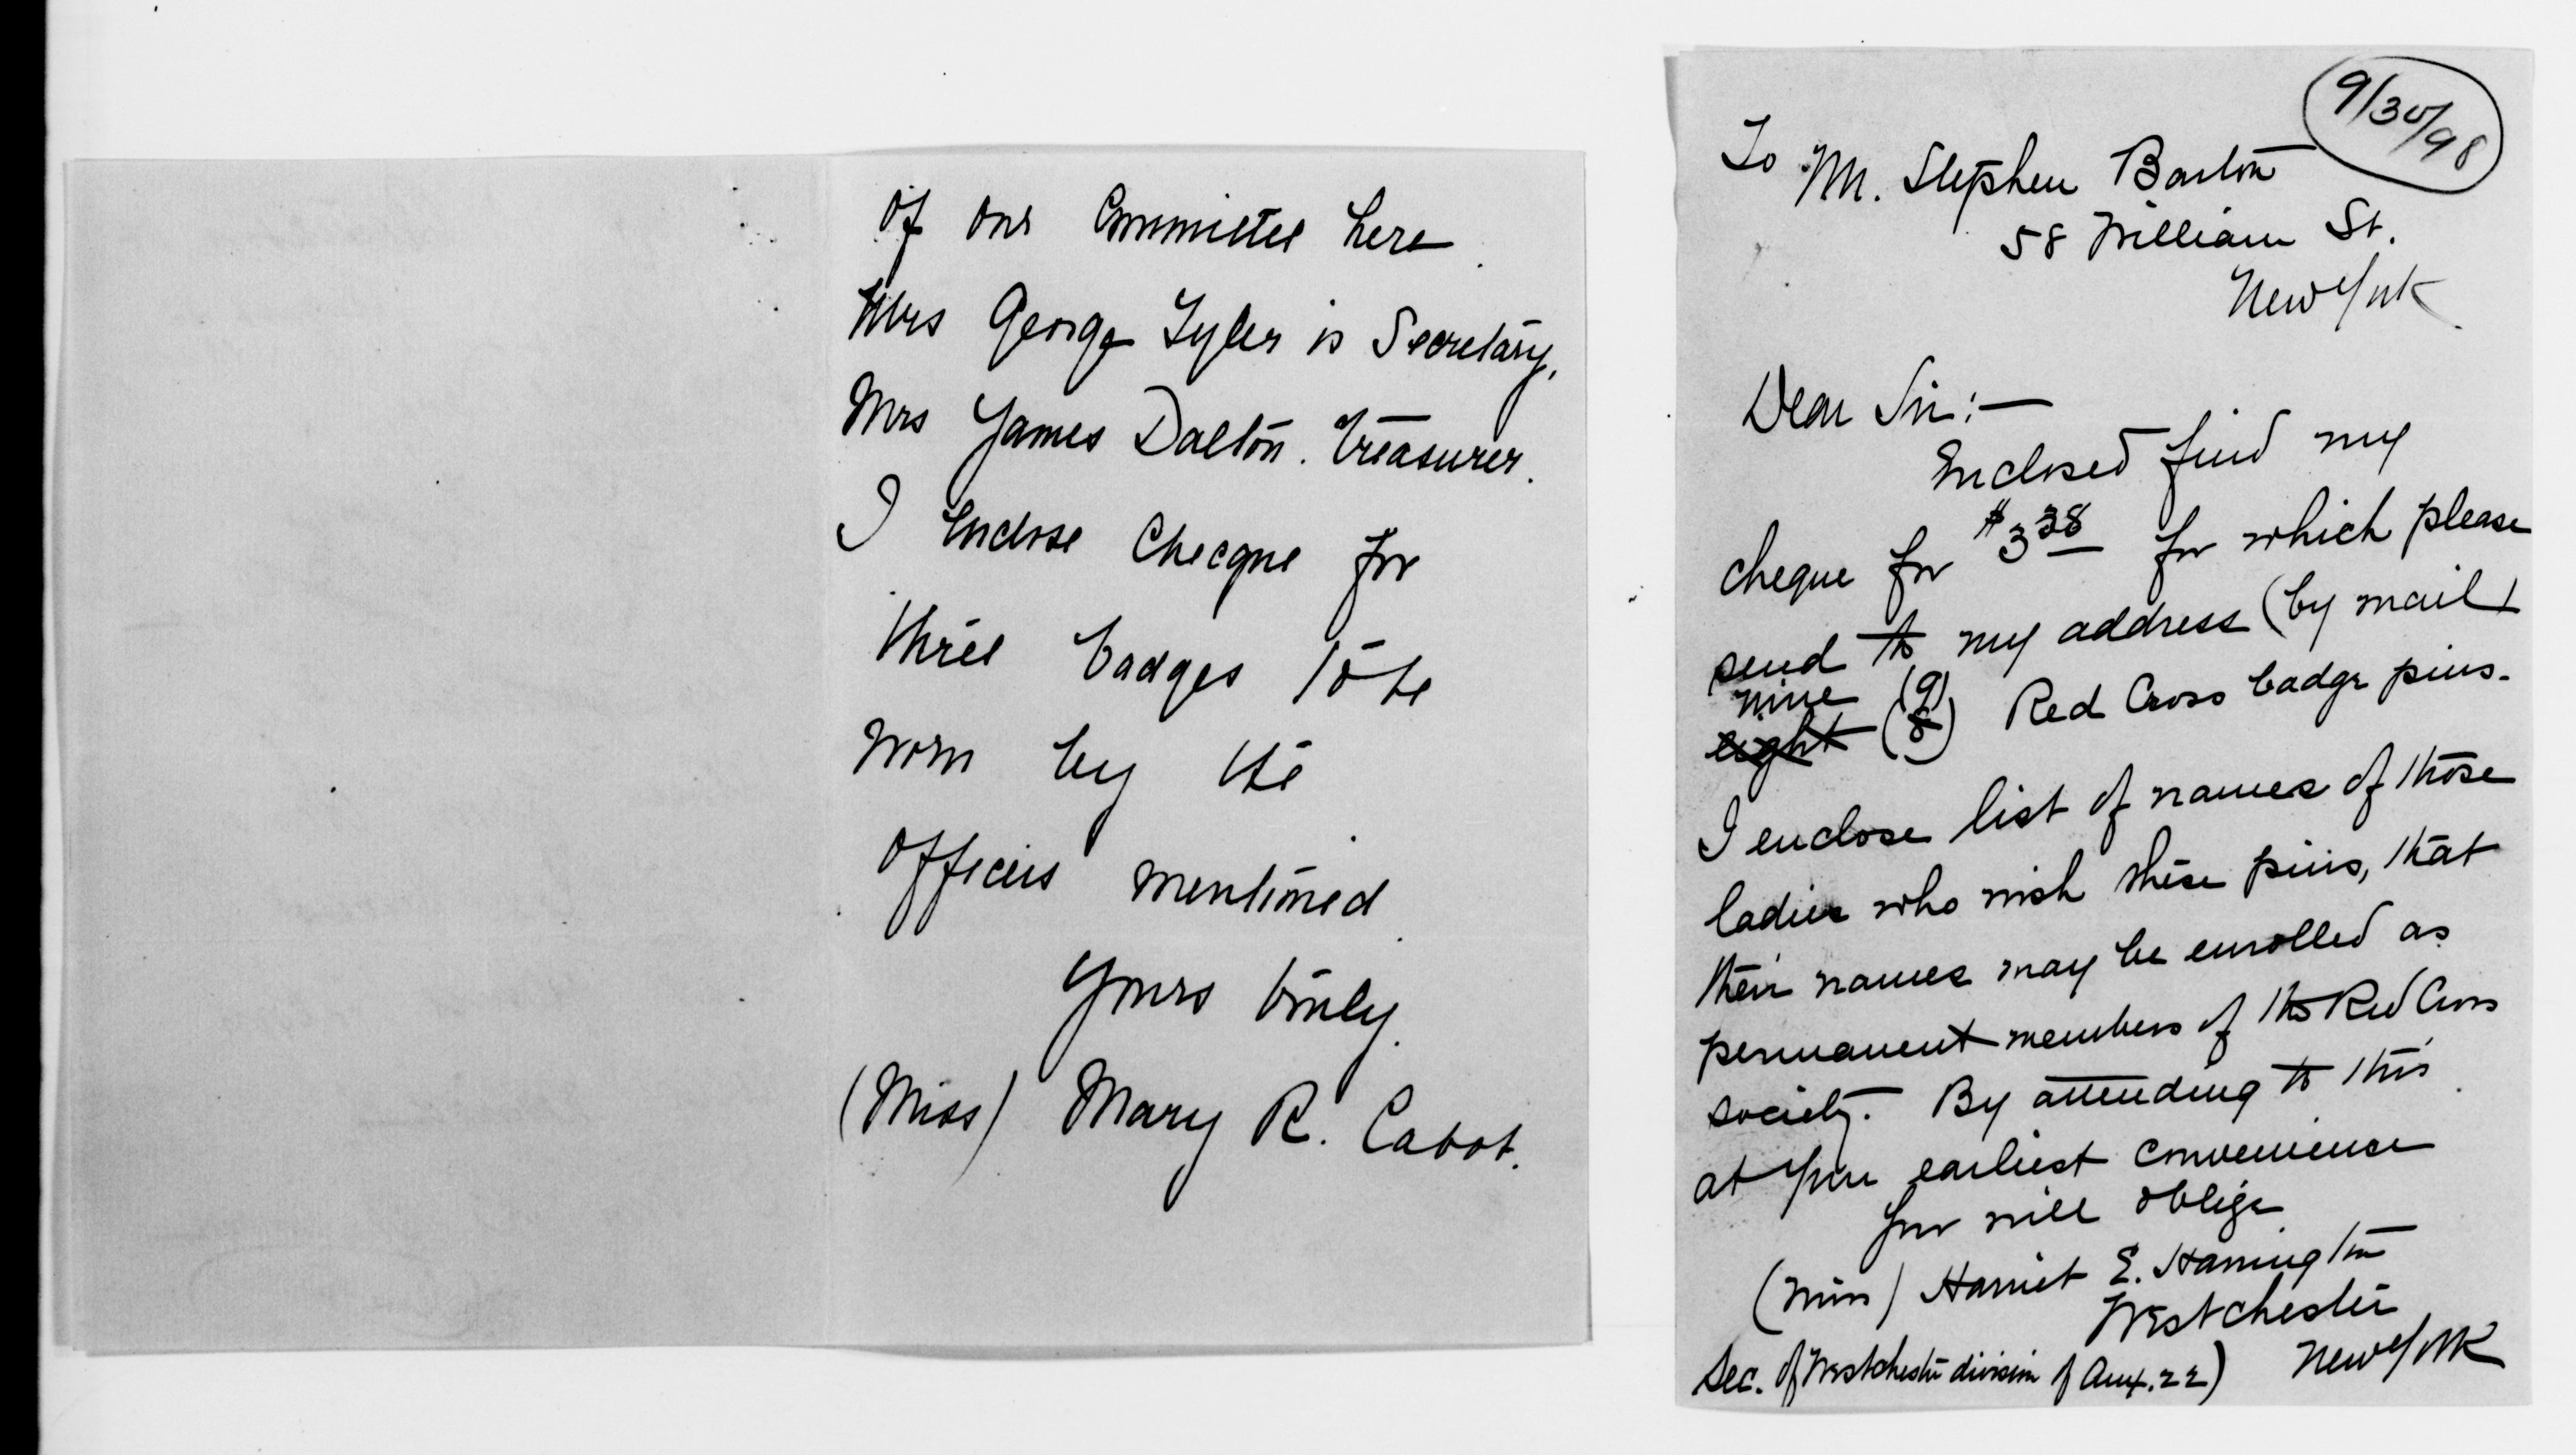 of our Committee here.
Mrs George Tyler is Secretary,
Mrs James Dalton. Treasurer.
I enclose Checque for
three badges to be
worn by the
officers mentioned.
Yours truly.
(Miss) Mary R. Cabot.
9/30/98
To Mr. Stephen Barton
58 William St.
New York.
Dear Sir:—
Enclosed find my
cheque for $3 38 for which please
send to my address (by mail)
nine (9)
eight (8) Red Cross badge pins.
I enclose list of names of those
ladies who wish these pins, that
their names may be enrolled as
permanent members of the Red Cross
society. By attending to this
at your earliest convenience
you will oblige
(Miss) Harriet E. Harrington
Westchester
New York
Sec. of Westchester division of Aux. 22)